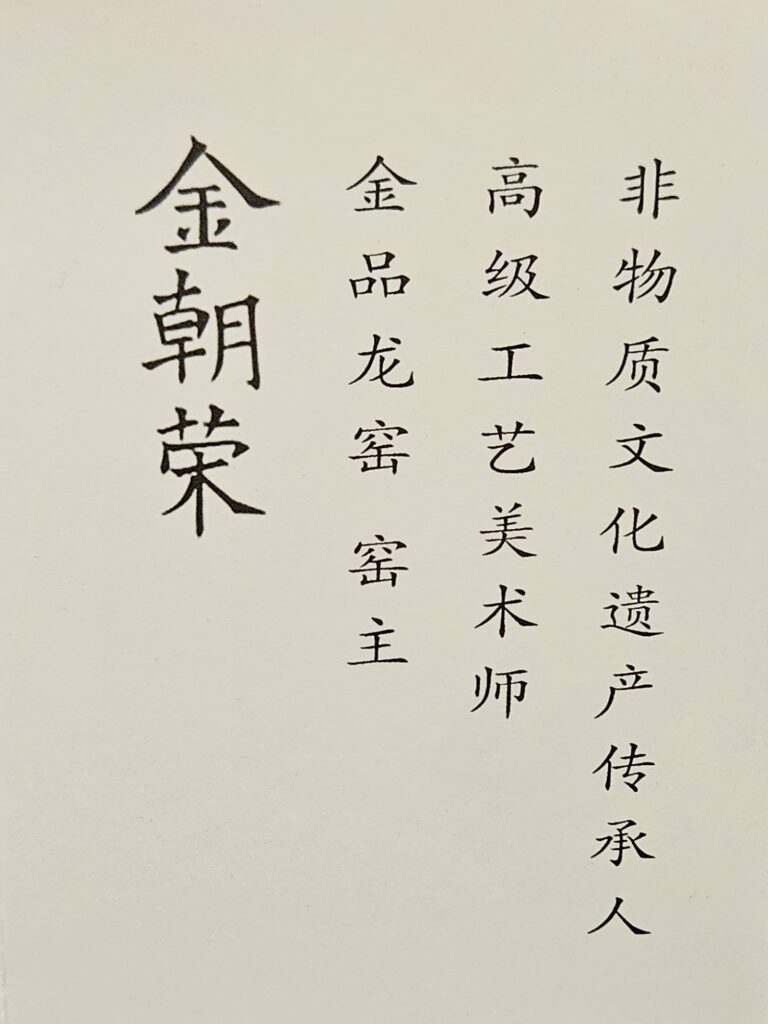 非物质文化遗产传承人
高级工艺美术师
金品龙窑 窑主
金朝荣